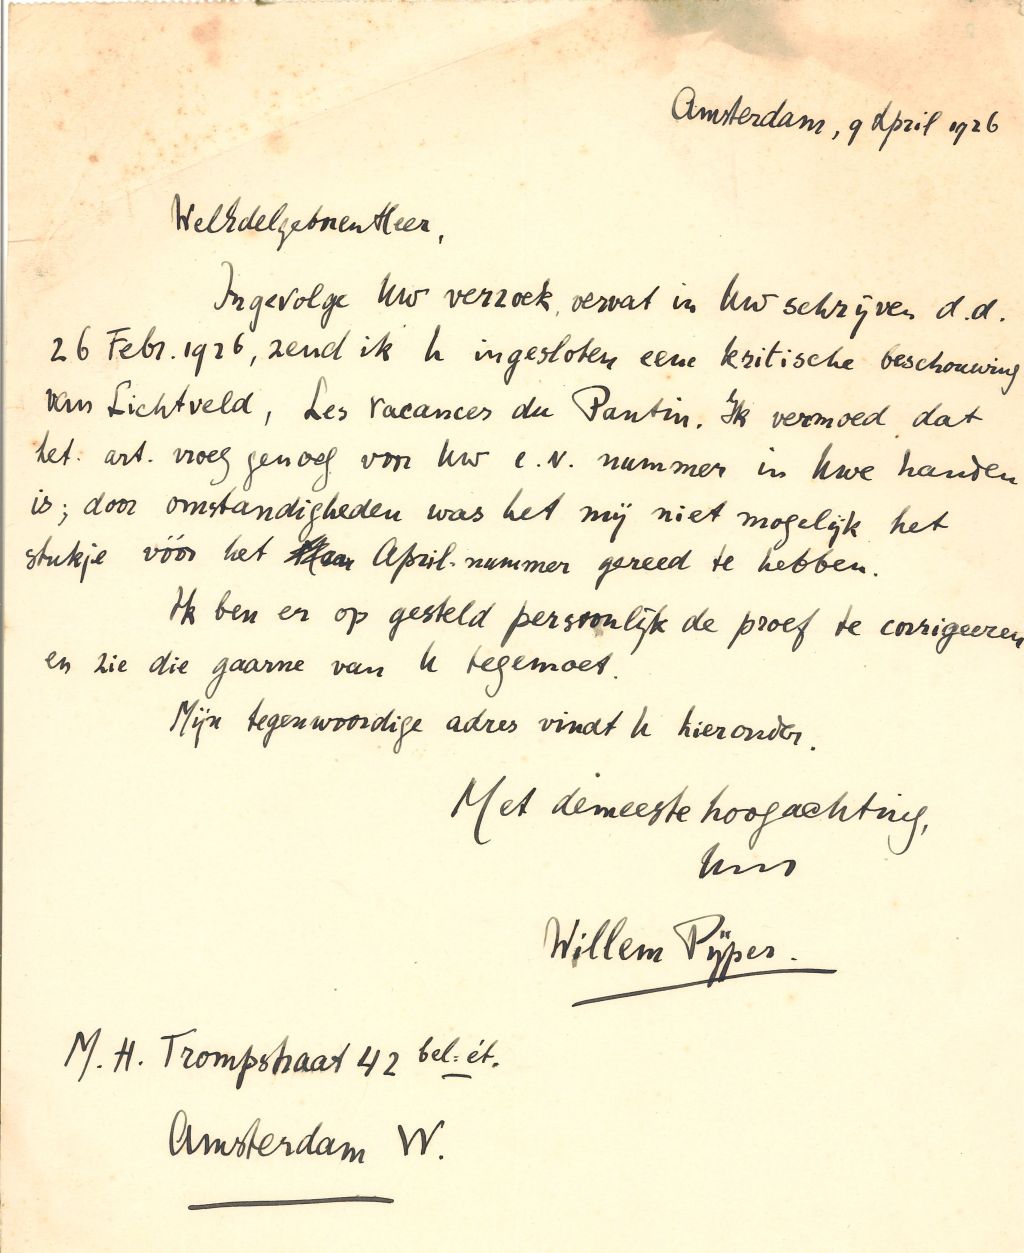 Amsterdam, 9 April 1926
WelEdelgeboren Heer,
Ingevolge Uw verzoek, vervat in Uw schrijven d.d.
26 Febr. 1926, zend ik U ingesloten eene kritische beschouwing
van Lichtveld, Les Vacances du Pantin. Ik vermoed dat
het art. vroeg genoeg voor Uw e.v. nummer in Uwe handen
is; door omstandigheden was het mij niet mogelijk het
stukje vóór het April-nummer gereed te hebben.
Ik ben er op gesteld persoonlijk de proef te corrigeeren
en zie die gaarne van U tegemoet.
Mijn tegenwoordige adres vindt U hieronder.
Met demeeste hoogachting,
Uw
Willem Pijper.
M. H. Trompstraat 42 bel-ét.
Amsterdam W.